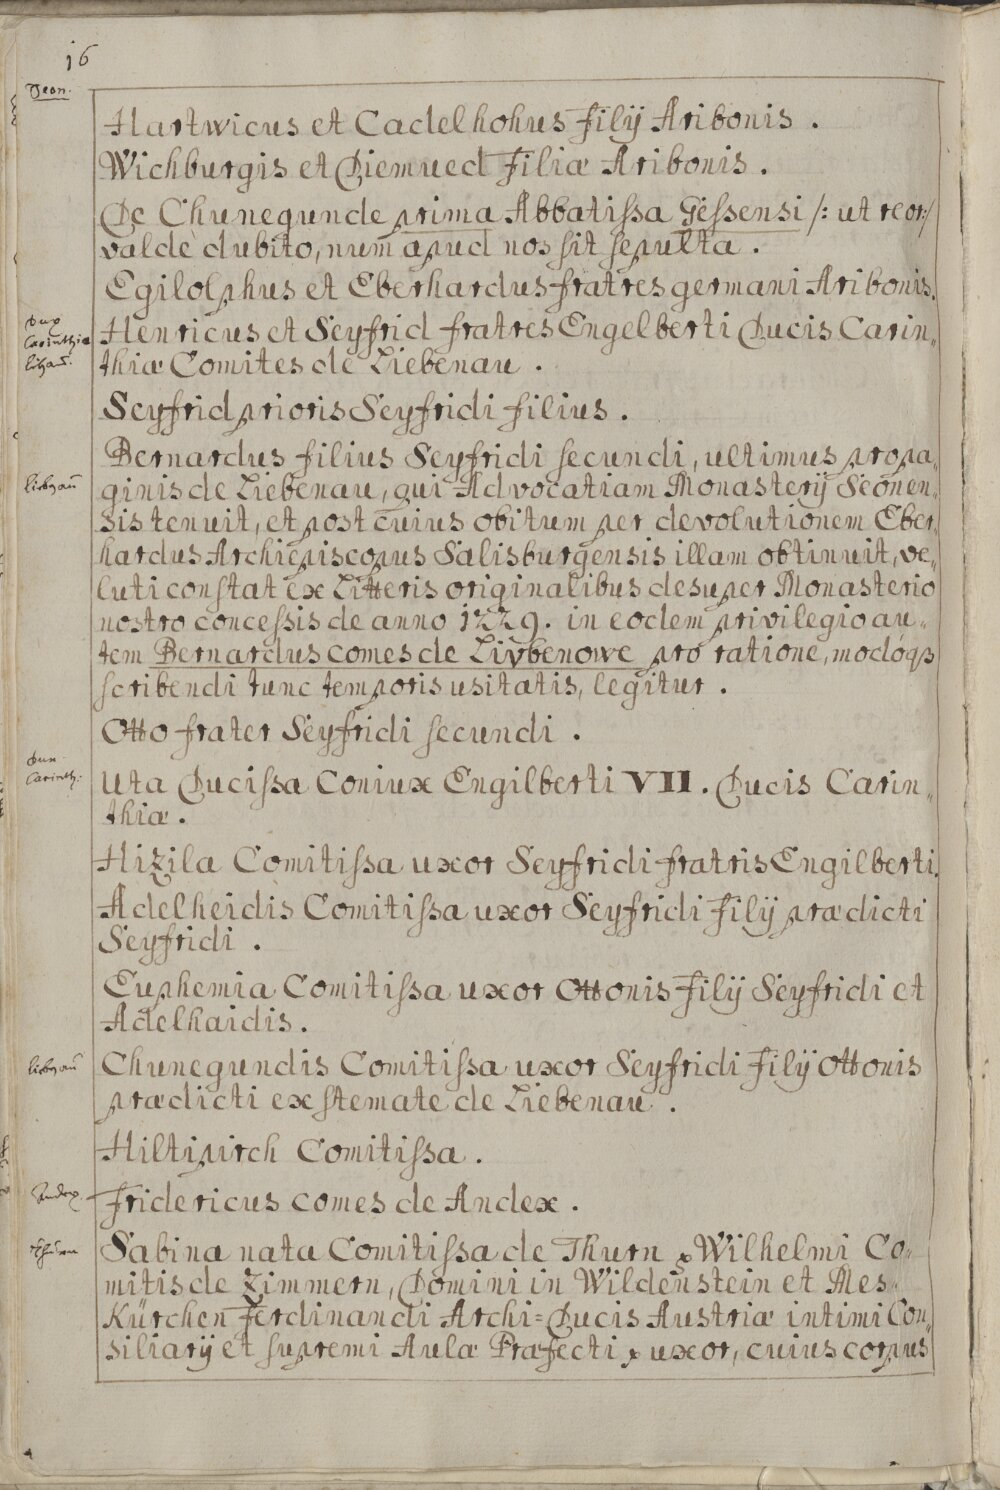 16
Seon.
Hartwicus et Cadelhohus Filÿ Aribonis.
Wichburgis et Diemued Filiæ Aribonis.
De Chunegunde prima Abbatissa Gessensi /: ut reor:/
valdè dubito, num apud nos sit sepulta.
Egilolphus et Eberhardus fratres germani Aribonis.
Dux
Carinthiæ
Henricus et Seyfrid fratres Engelberti Ducis Carin„
thiæ Comites de Liebenau.
Seyfrid prioris Seyfridi filius.
Bernardus filius Seyfridi secundi, ultimus propa„
liebnau
ginis de Liebenau, qui Advocatiam Monasterÿ Seonen„
sis tenuit, et post cuius obitum per devolutionem Eber„
hardus Archiepiscopus Salisburgensis illam obtinuit, ve„
luti constat ex Litteris originalibus desuper Monasterio
nostro concessis de anno 1229. in eodem privilegio au„
tem Bernardus comes de Livbenowe pro ratione, modoq3
scribendi tunc temporis usitatis, legitur.
Otto frater Seyfridi secundi.
Dux
Carinth:
Uta Ducissa Coniux Engilberti VII. Ducis Carin„
thiæ.
Hizila Comitissa uxor Seyfridi fratris Engilberti.
Adelheidis Comitissa uxor Seyfridi Filÿ prædicti
Seyfridi.
Euphemia Comitissa uxor Ottonis Filÿ Seyfridi et
Adelhaidis.
liebnau
Chunegundis Comitissa uxor Seyfridi Filÿ Ottonis
prædicti ex stemate de Liebenau.
Hiltipirch Comitissa.
Andex.
Fridericus comes de Andex.
Thurn
Sabina nata Comitissa de Thurn Wilhelmi Co„
mitis de Zimmern, Domini in Wildenstein et Mes„
Kürchen Ferdinandi Archi=Ducis Austriæ intimi Con„
siliarÿ et supremi Aulæ Præfecti uxor, cuius corpus